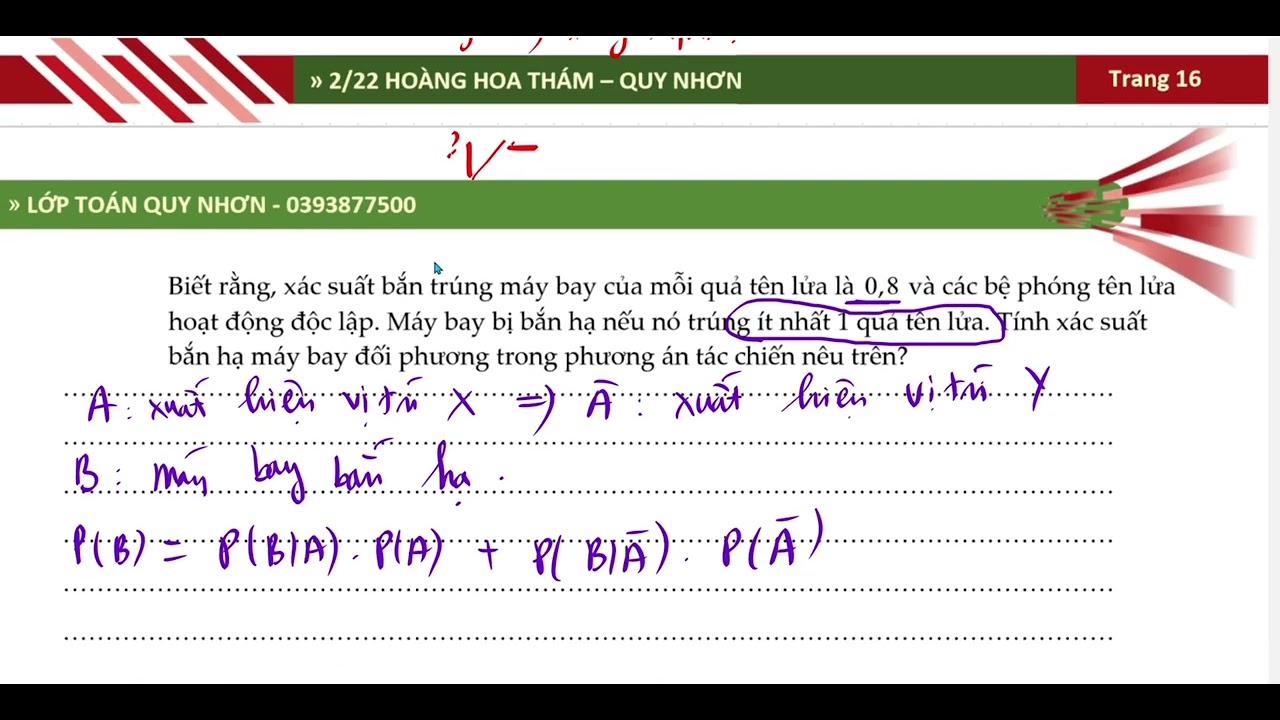 » 2/22 HOÀNG HOA THÁM – QUY NHƠN
Trang 16
» LỚP TOÁN QUY NHƠN - 0393877500
Biết rằng, xác suất bắn trúng máy bay của mỗi quả tên lửa là 0,8 và các bệ phóng tên lửa
hoạt động độc lập. Máy bay bị bắn hạ nếu nó trúng ít nhất 1 quả tên lửa. Tính xác suất
bắn hạ máy bay đối phương trong phương án tác chiến nêu trên?
A : xuất hiện vị trí X => Ā : xuất hiện vị trí Y
B : máy bay bắn hạ .
P(B) = P(B|A) . P(A) + P(B|Ā) . P(Ā)